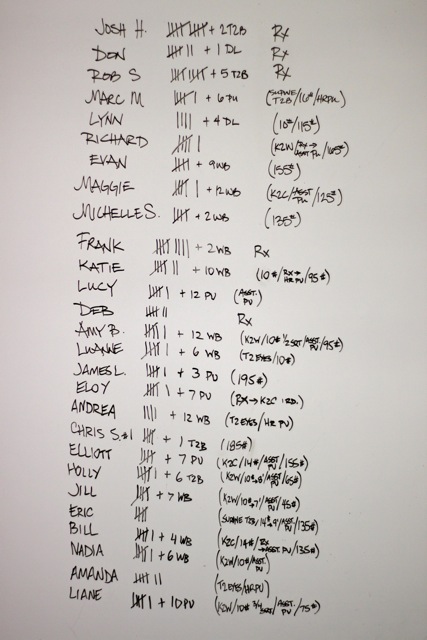 JOSH H. 𝍸 𝍸 + 2 T2B Rx
DON 𝍸 || + 1 DL Rx
ROB S 𝍸 𝍸 + 5 T2B Rx
MARC M 𝍸 | + 6 PU (SUPINE T2B/10#/HRPU)
LYNN |||| + 4 DL (10#/115#)
RICHARD 𝍸 | (K2W/Rx→ASST PU/165#)
EVAN 𝍸 + 9 WB (155#)
MAGGIE 𝍸 | + 12 WB (K2C/ASST PU/125#)
MICHELLE S. 𝍸 + 2 WB (135#)
FRANK 𝍸 |||| + 2 WB Rx
KATIE 𝍸 || + 10 WB (10#/Rx→HR PU/95#)
LUCY 𝍸 | + 12 PU (ASST. PU)
DEB 𝍸 || Rx
AMY B. 𝍸 | + 12 WB (K2W/10# 1/2 SQT/ASST. PU/95#)
LUANNE 𝍸 | + 6 WB (T2EYES/10#)
JAMES L. 𝍸 | + 3 PU (195#)
ELOY 𝍸 | + 7 PU (Rx→K2C 1RD.)
ANDREA |||| + 12 WB (T2EYES/HR PU)
CHRIS S.#1 𝍸 + 1 T2B (185#)
ELLIOTT 𝍸 + 7 PU (K2C/14#/ASST PU/155#)
HOLLY 𝍸 | + 6 T2B (K2W/10#→8'/ASST. PU/65#)
JILL 𝍸 + 7 WB (K2W/10#→7'/ASST. PU/45#)
ERIC 𝍸 (SUPINE T2B/14#→9'/ASST. PU/135#)
BILL 𝍸 | + 4 WB (K2C/14#/Rx→ASST. PU/135#)
NADIA 𝍸 | + 6 WB (K2W/10#/ASST. PU)
AMANDA 𝍸 || (T2EYES/HRPU)
LIANE 𝍸 | + 10 PU (K2W/10# 3/4 SQT/ASST. PU/75#)